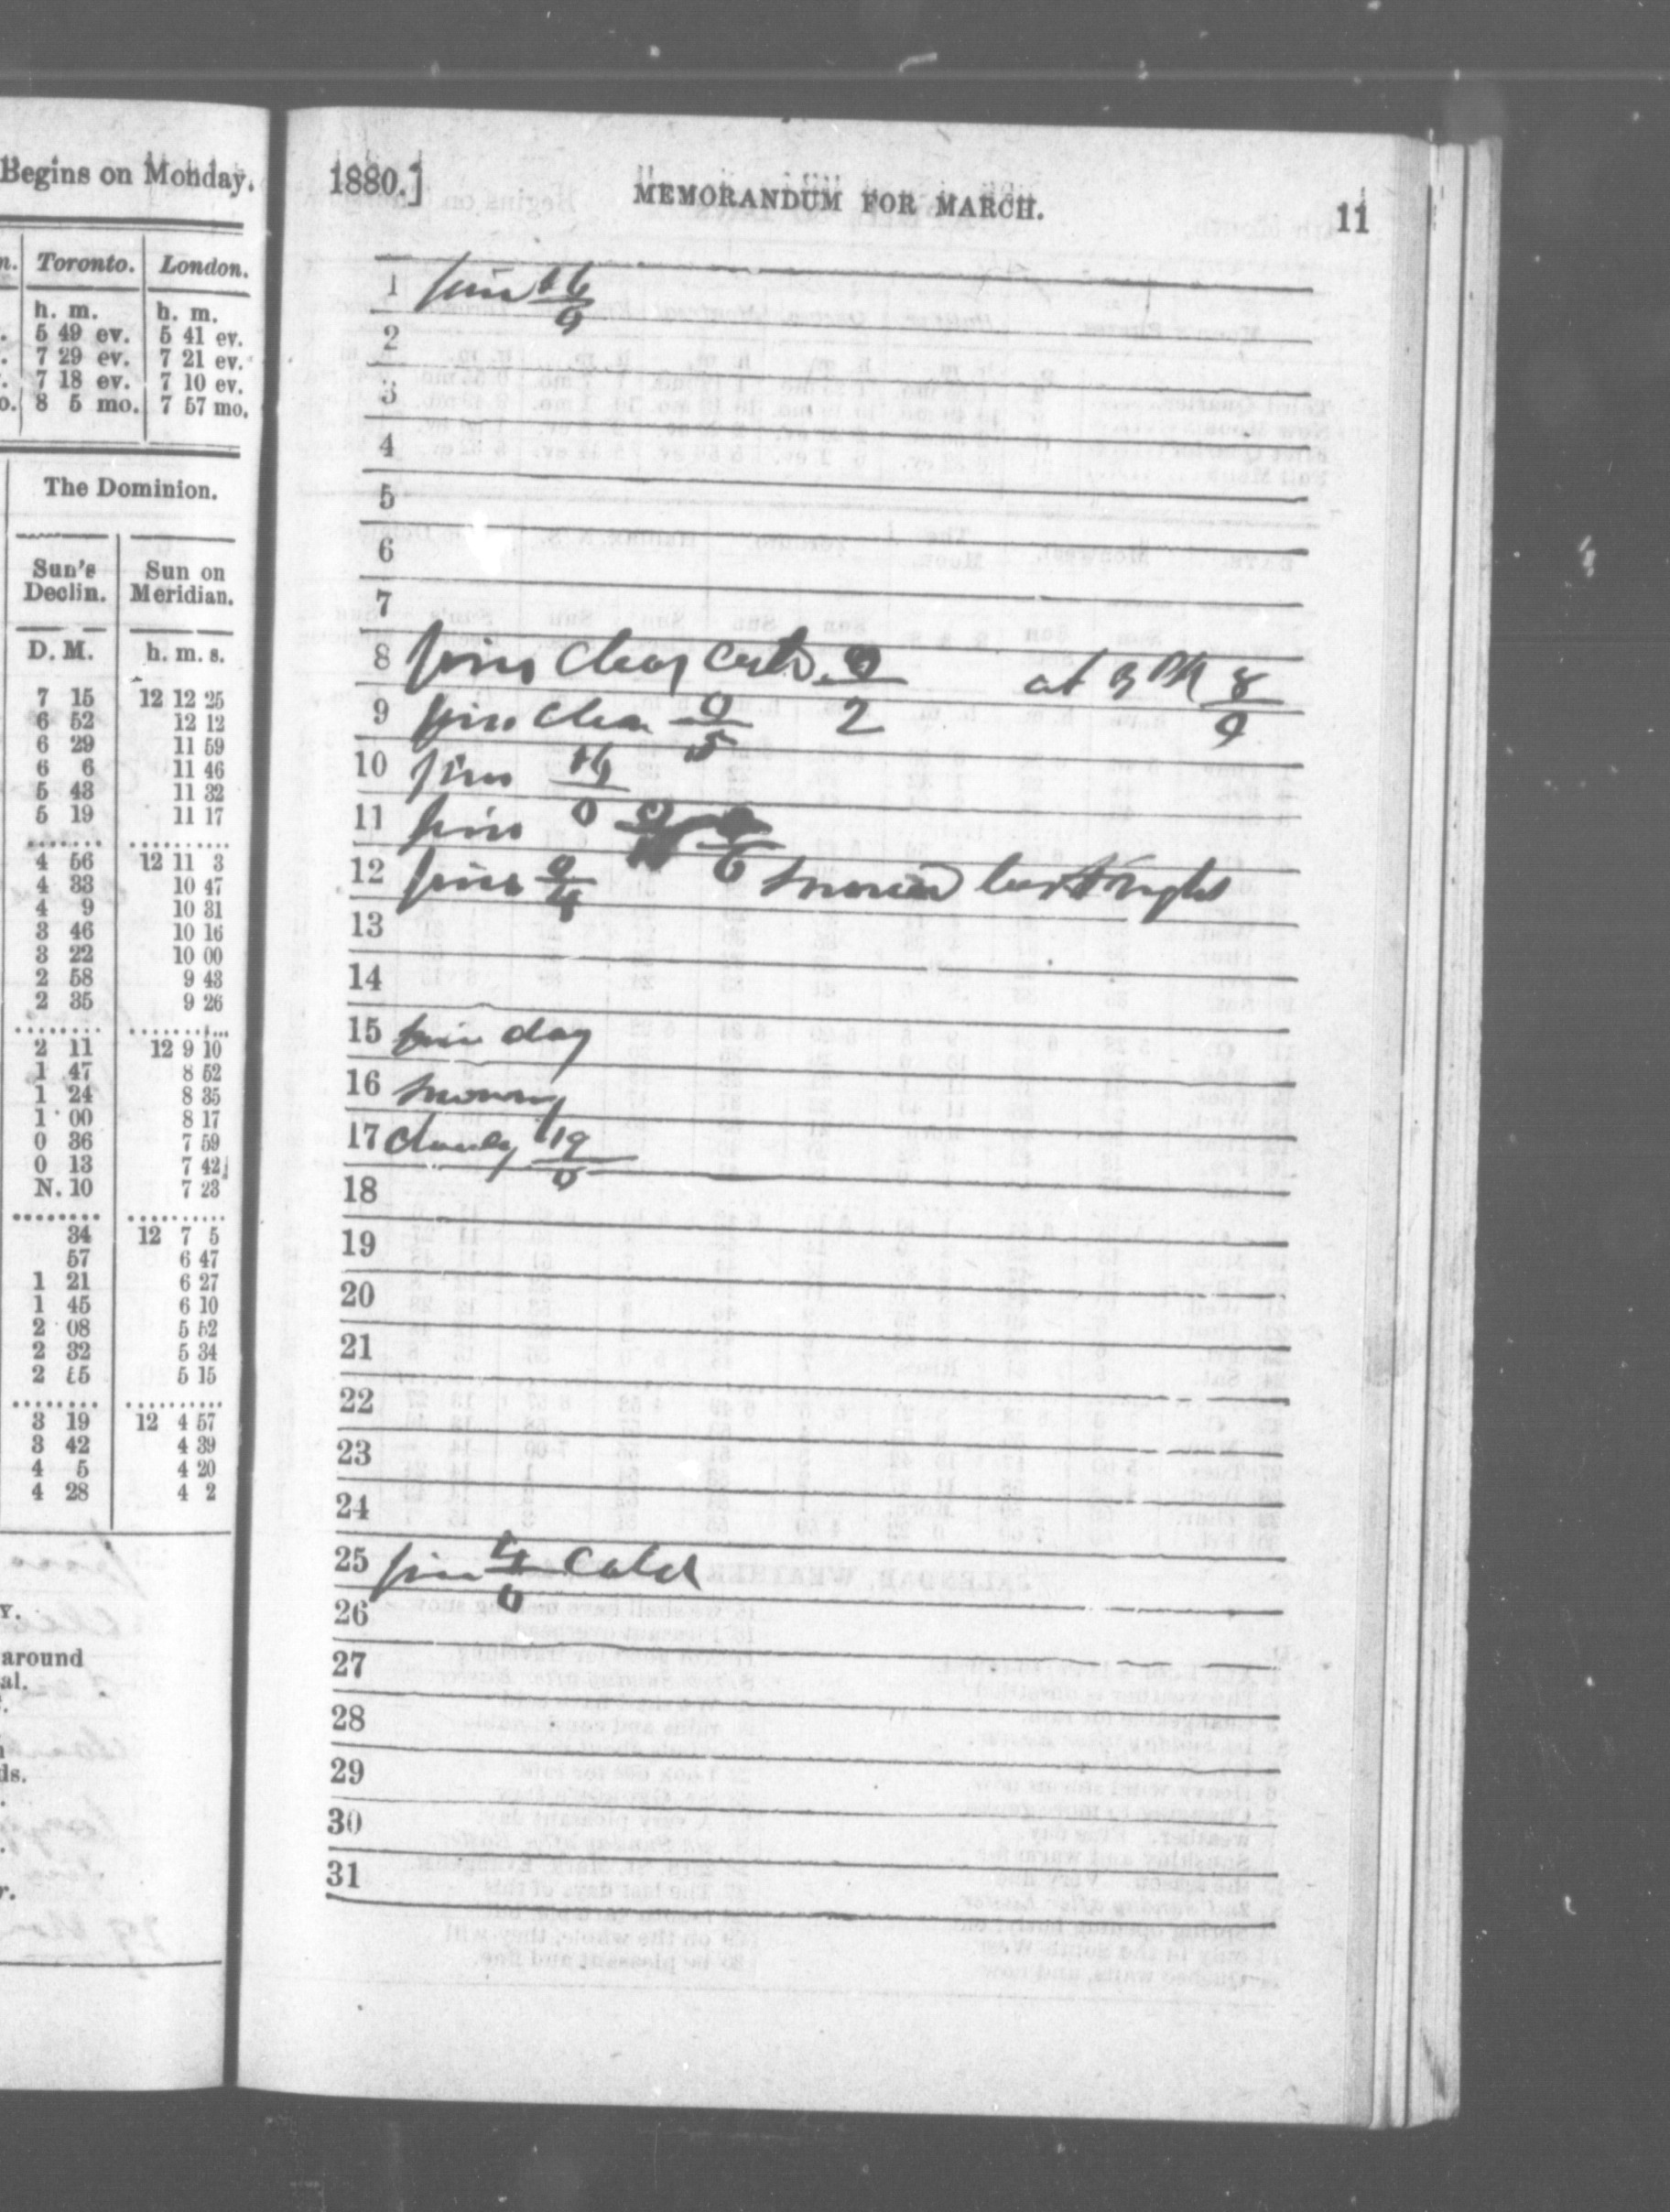 Begins on Monday.
Toronto. London.
h. m. h. m.
5 49 ev. 5 41 ev.
7 29 ev. 7 21 ev.
7 18 ev. 7 10 ev.
8 5 mo. 7 57 mo.
The Dominion.
Sun's Declin. Sun on Meridian.
D. M. h. m. s.
7 15 12 12 25
6 52 12 12
6 29 11 59
6 6 11 46
5 43 11 32
5 19 11 17
4 56 12 11 3
4 33 10 47
4 9 10 31
3 46 10 16
3 22 10 00
2 58 9 43
2 35 9 26
2 11 12 9 10
1 47 8 52
1 24 8 35
1 00 8 17
0 36 7 59
0 13 7 42
N. 10 7 23
34 12 7 5
57 6 47
1 21 6 27
1 45 6 10
2 08 5 52
2 32 5 34
2 55 5 15
3 19 12 4 57
3 42 4 39
4 5 4 20
4 28 4 2
around
1880.] MEMORANDUM FOR MARCH. 11
1 fine 16/9
2
3
4
5
6
7
8 fine clear cold 0/2 at 3 PM 8/9
9 fine clear 0/5
10 fine 16/0
11 fine 0/6
12 fine 0/4 snowed last night
13
14
15 fine day
16 snowing
17 cloudy 19/0
18
19
20
21
22
23
24
25 fine 4/0 cold
26
27
28
29
30
31